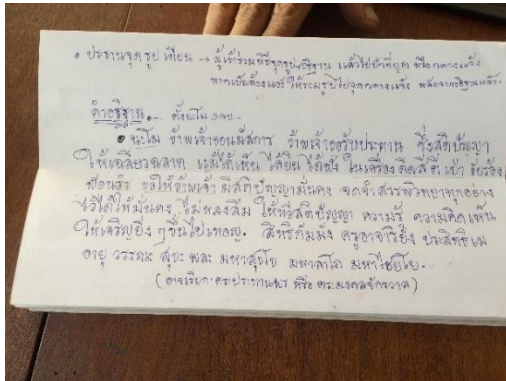 • ประธานจุดธูปเทียน → ผู้เข้าร่วมพิธีจุดธูปอธิฐาน แล้วไปปักที่ หรือกลางแจ้ง
หากเป็นห้องแอร์ ให้รวมธูปไปจุดกลางแจ้ง หลังจากอธิฐานแล้ว.
คำอธิฐาน... ตั้งนะโม 3 จบ..
นะโม ข้าพเจ้าขอนมัสการ ข้าพเจ้าขอรับประทาน ซึ่งสติปัญญา
ให้เฉลียวฉลาด แม้ได้เห็น ได้ยิน ได้ฟัง ในเครื่องดีดสีตีเป่า ขับร้อง
ฟ้อนรำ ขอให้ข้าพเจ้า มีสติปัญญามั่นคง จดจำสรรพวิทยาทุกอย่าง
ไว้ได้ให้มั่นคง ไม่หลงลืม ให้ทวีสติปัญญา ความรู้ ความคิดเห็น
ให้เจริญยิ่งๆขึ้นไปเทอญ. สิทธิกัมมัง ครูอาจาริยัง ประสิทธิเม
อายุ วรรณะ สุขะ พละ มหาสุโข มหาลาโภ มหาไชยโย.
(อาจเรียก หรือ ตระมงคลจักรวาล)